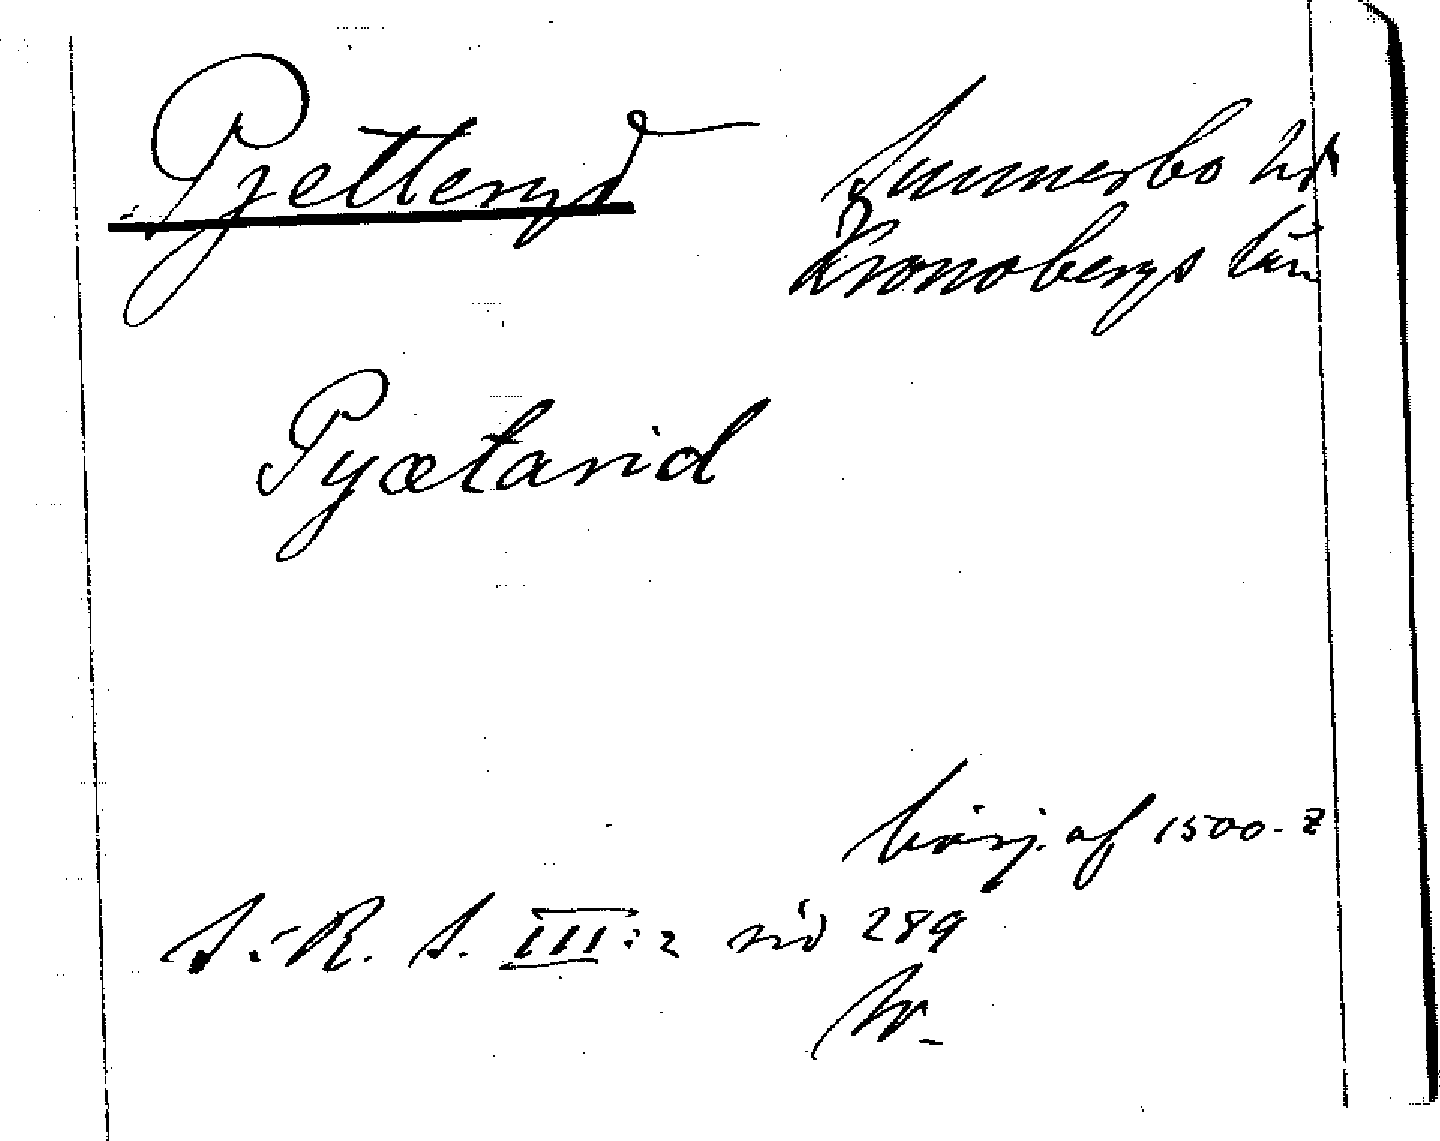 Pjetteryd
Sunnerbo hd
Kronobergs län
Pyætarid
börj. af 1500-t
S. R. S. III:2 sid 289